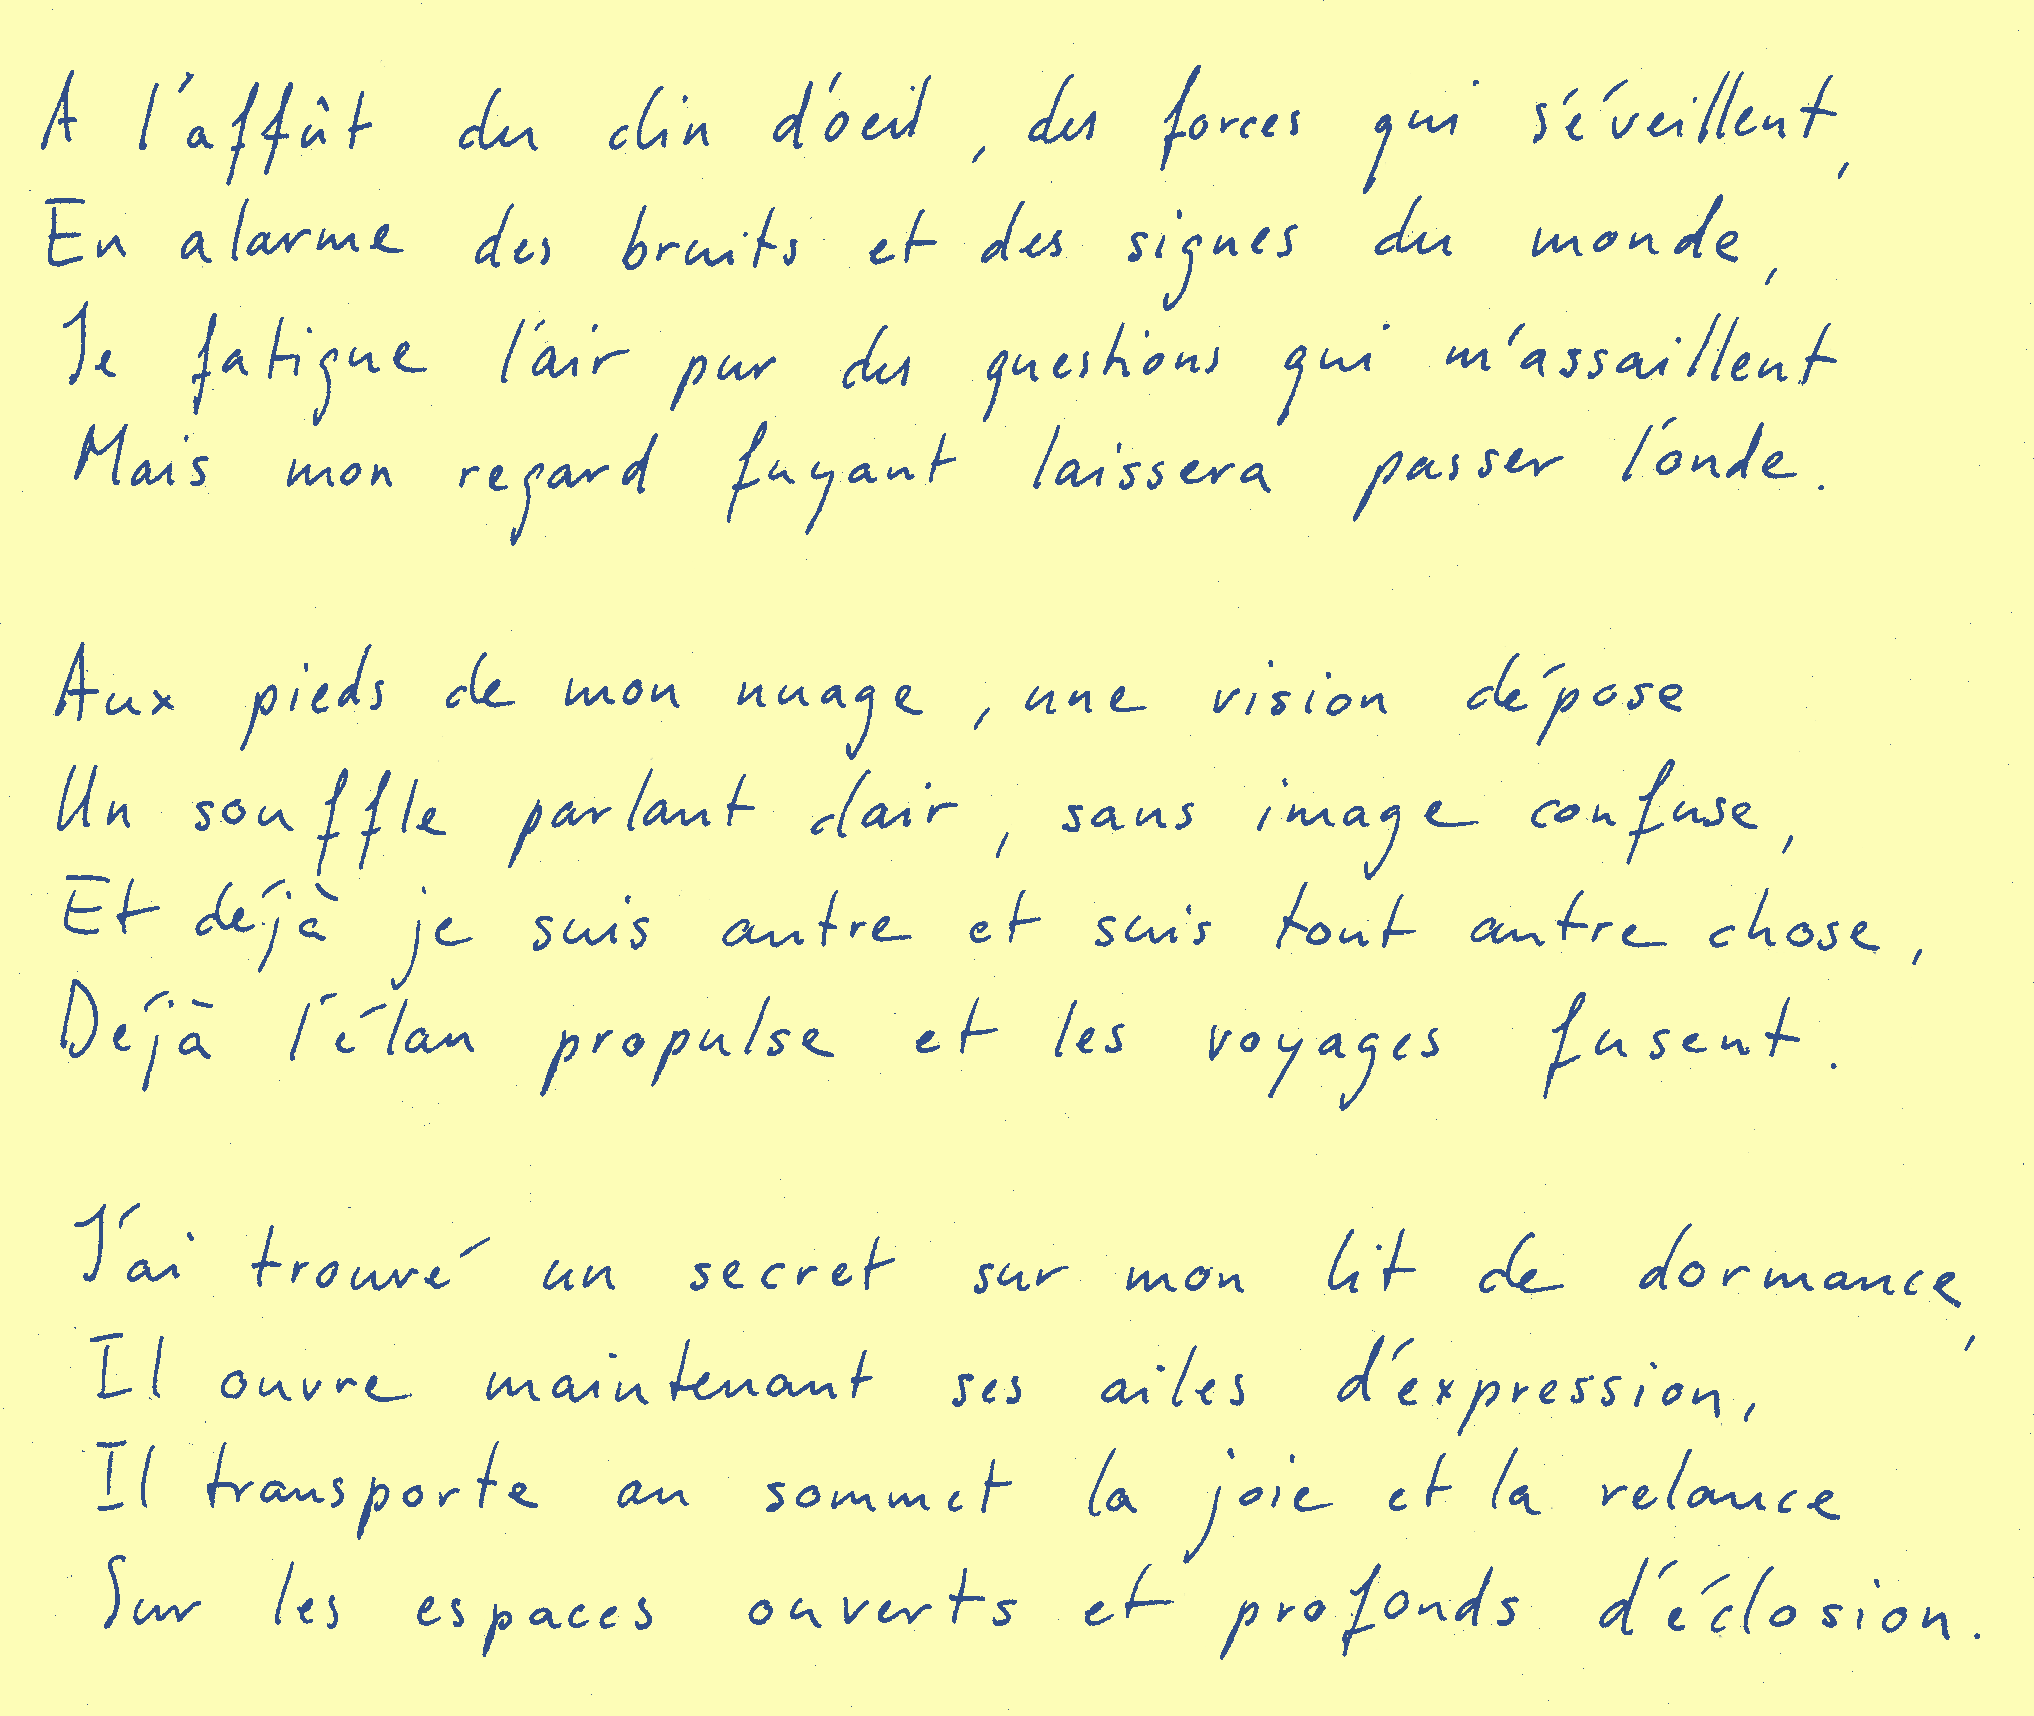 A l'affût du clin d'oeil, des forces qui s'éveillent,
En alarme des bruits et des signes du monde,
Je fatigue l'air pur des questions qui m'assaillent
Mais mon regard fuyant laissera passer l'onde.
Aux pieds de mon nuage, une vision dépose
Un souffle parlant clair, sans image confuse,
Et déjà je suis autre et suis tout autre chose,
Déjà l'élan propulse et les voyages fusent.
J'ai trouvé un secret sur mon lit de dormance,
Il ouvre maintenant ses ailes d'expression,
Il transporte au sommet la joie et la relance
Sur les espaces ouverts et profonds d'éclosion.